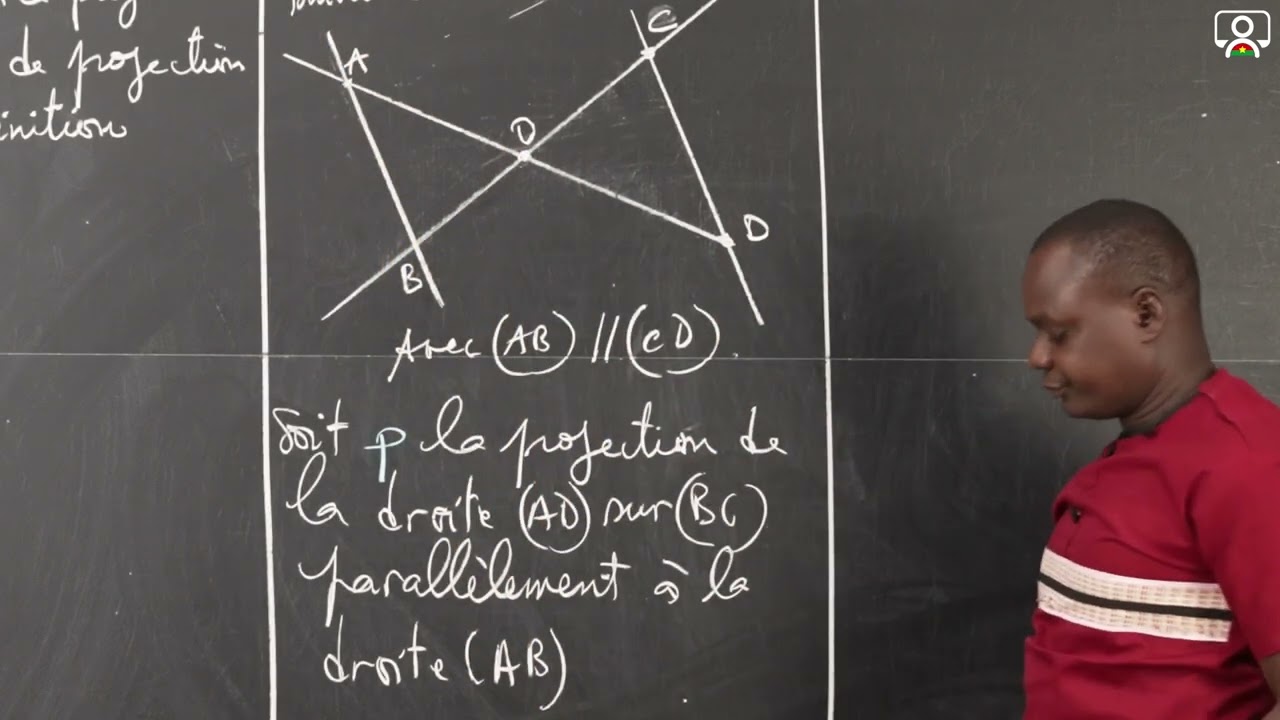 de projection
A
C
O
B
D
Avec (AB) // (CD).
Soit p la projection de
la droite (AD) sur (BC)
parallèlement à la
droite (AB)